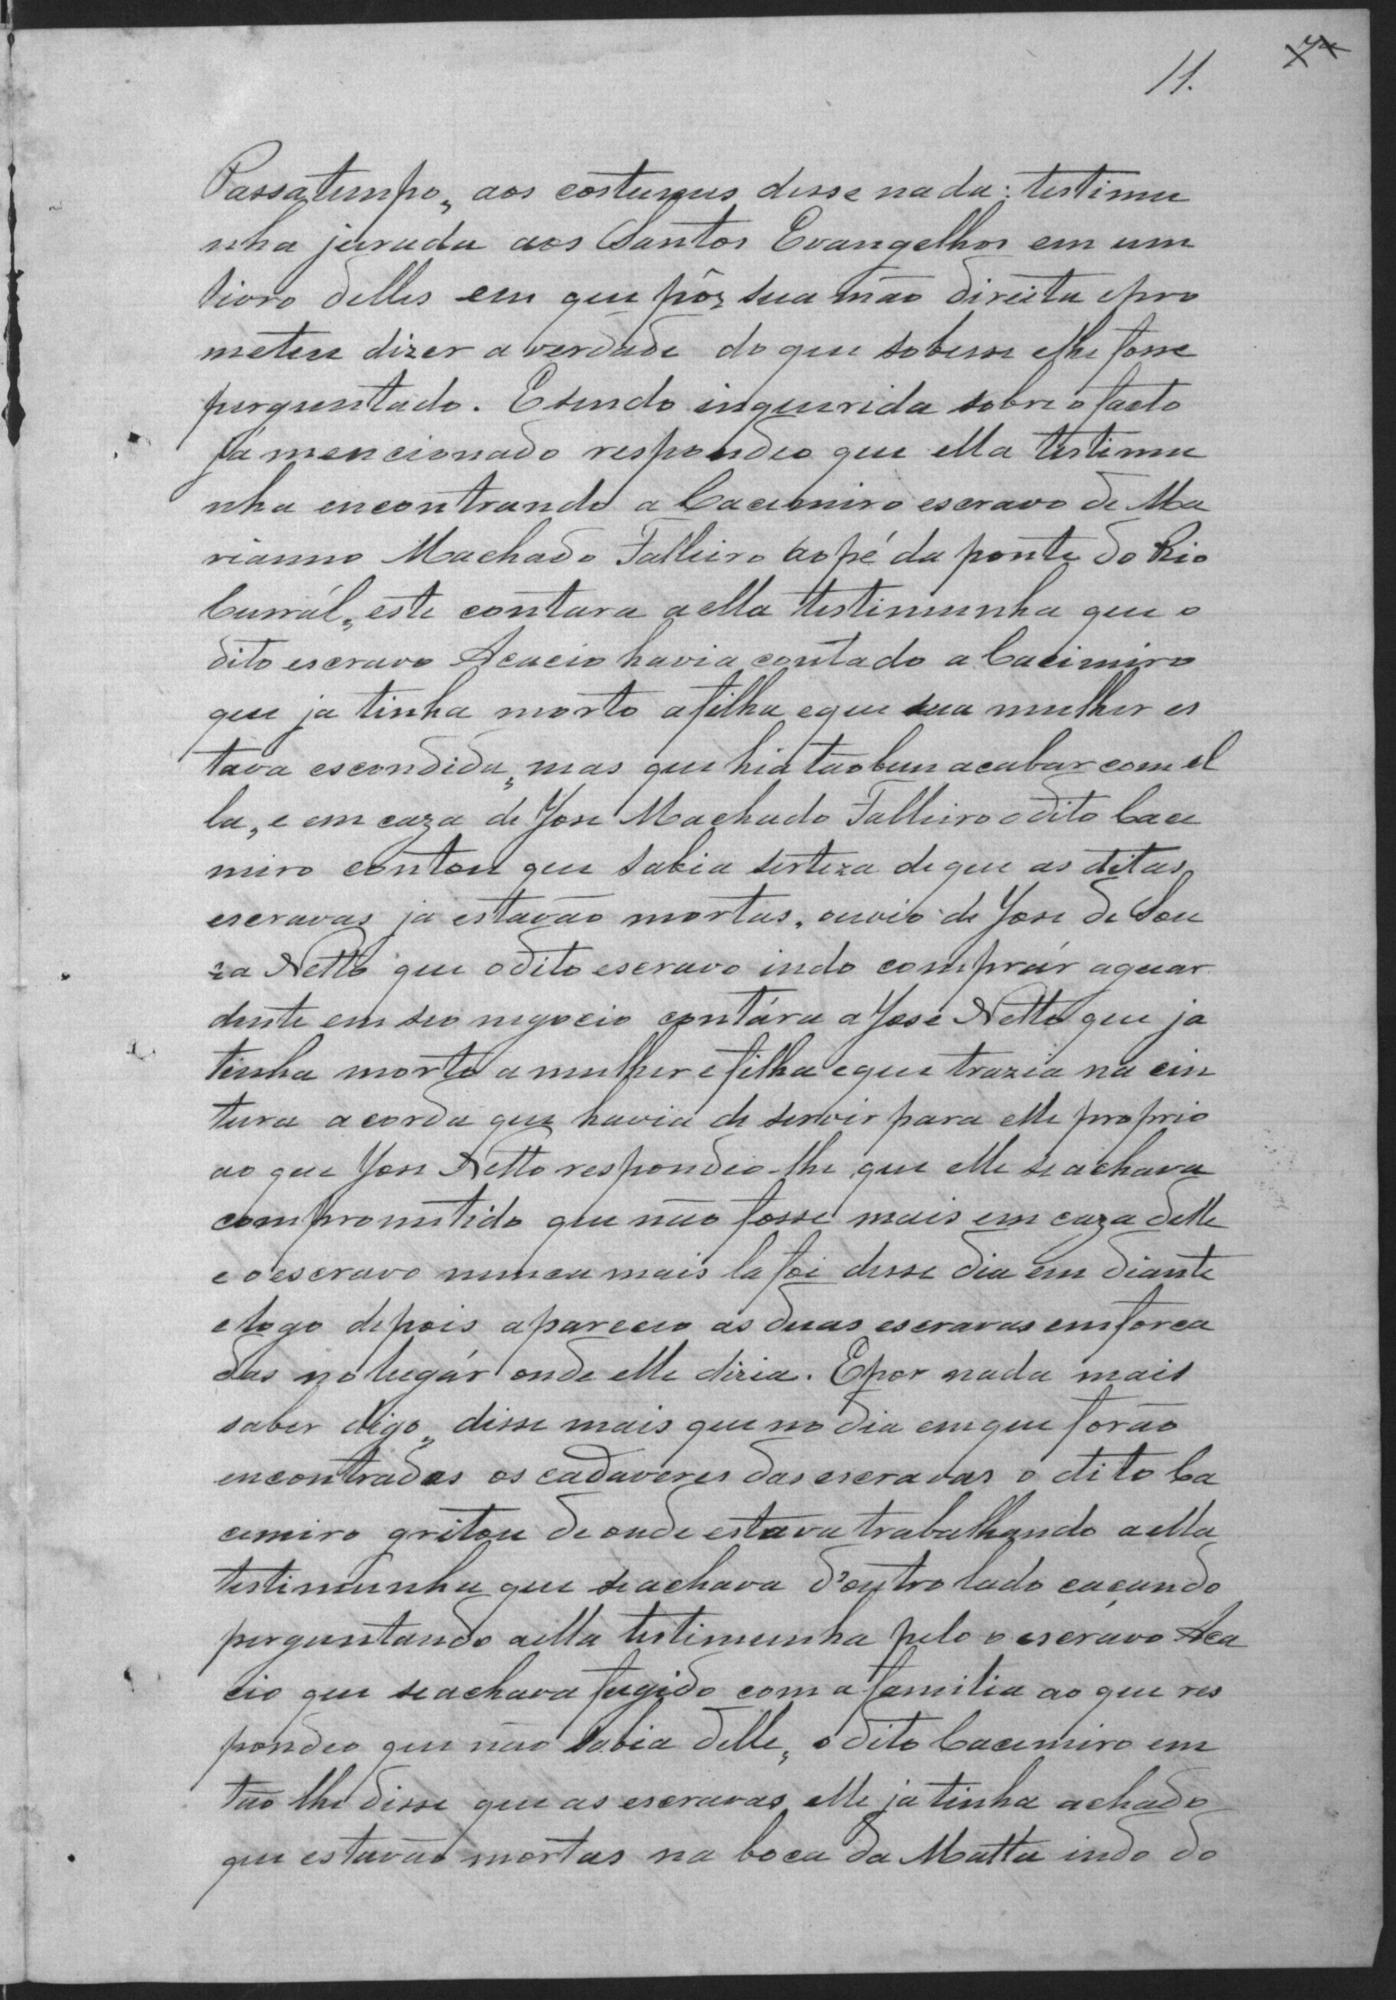 11.
Passatempo, aos costumes disse nada: testimu
nha jurada aos Santos Evangelhos em um
livro delles em que pôz sua mão direita epro
meteu dizer a verdade do que soubesse elhe fosse
perguntado. Esendo inquerida sobre o facto
já mencionado respondeo que ella testimu
nha encontrando a Cacimiro escravo de Ma
rianno Machado Falleiro ao pé da ponte do Rio
Currál, este contara a ella testimunha que o
dito escravo Acacio havia contado a Cacimiro
que ja tinha morto afilha eque sua mulher es
tava escondida, mas que hia tãobem acabar com el
la, e em caza de Jose Machado Falleiro o dito Caci
miro contou que sabia serteza de que as ditas
escravas ja estavão mortas, ouvio de Jose de Sou
za Netto que odito escravo indo comprár aguar
dente em seo negocio contára a José Netto que ja
tinha morto a mulher e filha eque trazia na cin
tura a corda que havia de servir para elle proprio
ao que Jose Netto respondeo-lhe que elle se achava
compromitido que não fosse mais em caza delle
e oescravo nunca mais la foi desse dia em diante
e logo depois aparecco as duas escravas emforca
das no lugár onde elle dizia. Epor nada mais
saber digo, disse mais que no dia emque forão
encontrados os cadaveres das escravas o dito Ca
cimiro gritou de onde estava trabalhando aella
testimunha que seachava d'outro lado caçando
perguntando aella testimunha pelo o escravo Aca
cio que seachava fugido com a familia ao que res
pondeo que não sabia delle, o dito Cacimiro em
tão lhe disse que as escravas elle ja tinha achado
que estavão mortas na boca da Matta indo do